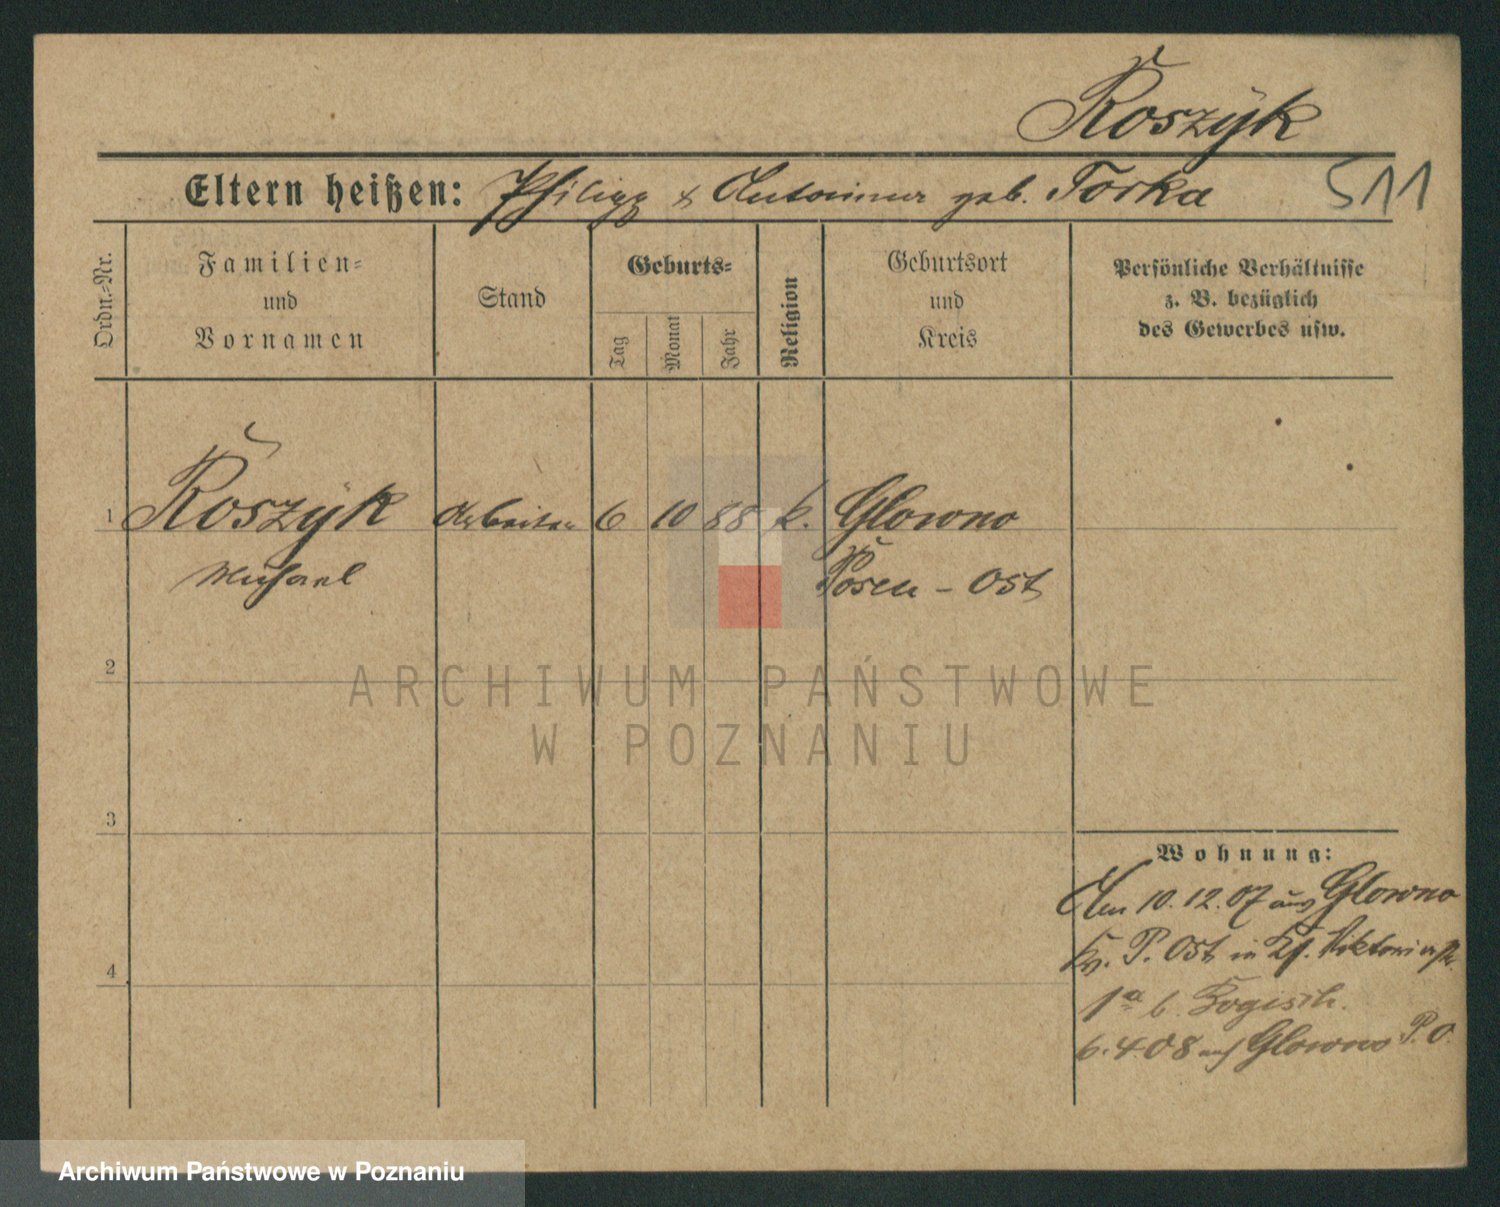 Roszÿk
Eltern heißen: Philipp & Antonina geb. Torka 511
Ordn.-Nr.
Familien-
und
Vornamen
Stand
Geburts-
Tag
Monat
Jahr
Religion
Geburtsort
und
Kreis
Persönliche Verhältnisse
z. B. bezüglich
des Gewerbes usw.
1 Roszÿk Arbeiter 6 10 88 k. Glowno
Michael Posen - Ost
2
ARCHIWUM PAŃSTWOWE
W POZNANIU
3
Wohnung:
Am 10.12.07 aus Glowno
Kr. P. Ost in
4
1a b.
6.4 08 auf Glowno P. O.
Archiwum Państwowe w Poznaniu